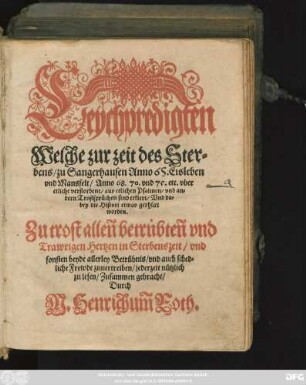 Leychpredigten
Welche zur zeit des Ster-
bens/ zu Sangerhausen Anno 65. Eisleben
vnd Mansfelt/ Anno 68. 70. vnd 75. etc. vber
etliche verstorbene/ aus etlichen Psalmen/ vnd an-
dern Trostsprüchen sind
worden.
Zu trost allen betrübten vnd
Trawrigen Hertzen in Sterbenszeit/ vnd
sonsten beyde allerley Betrübnis/ vnd auch sched-
liche Frewde zuuertreiben/ jederzeit nützlich
zu lesen/ Zusammen gebracht/
Durch
M. Henrichum Roth.